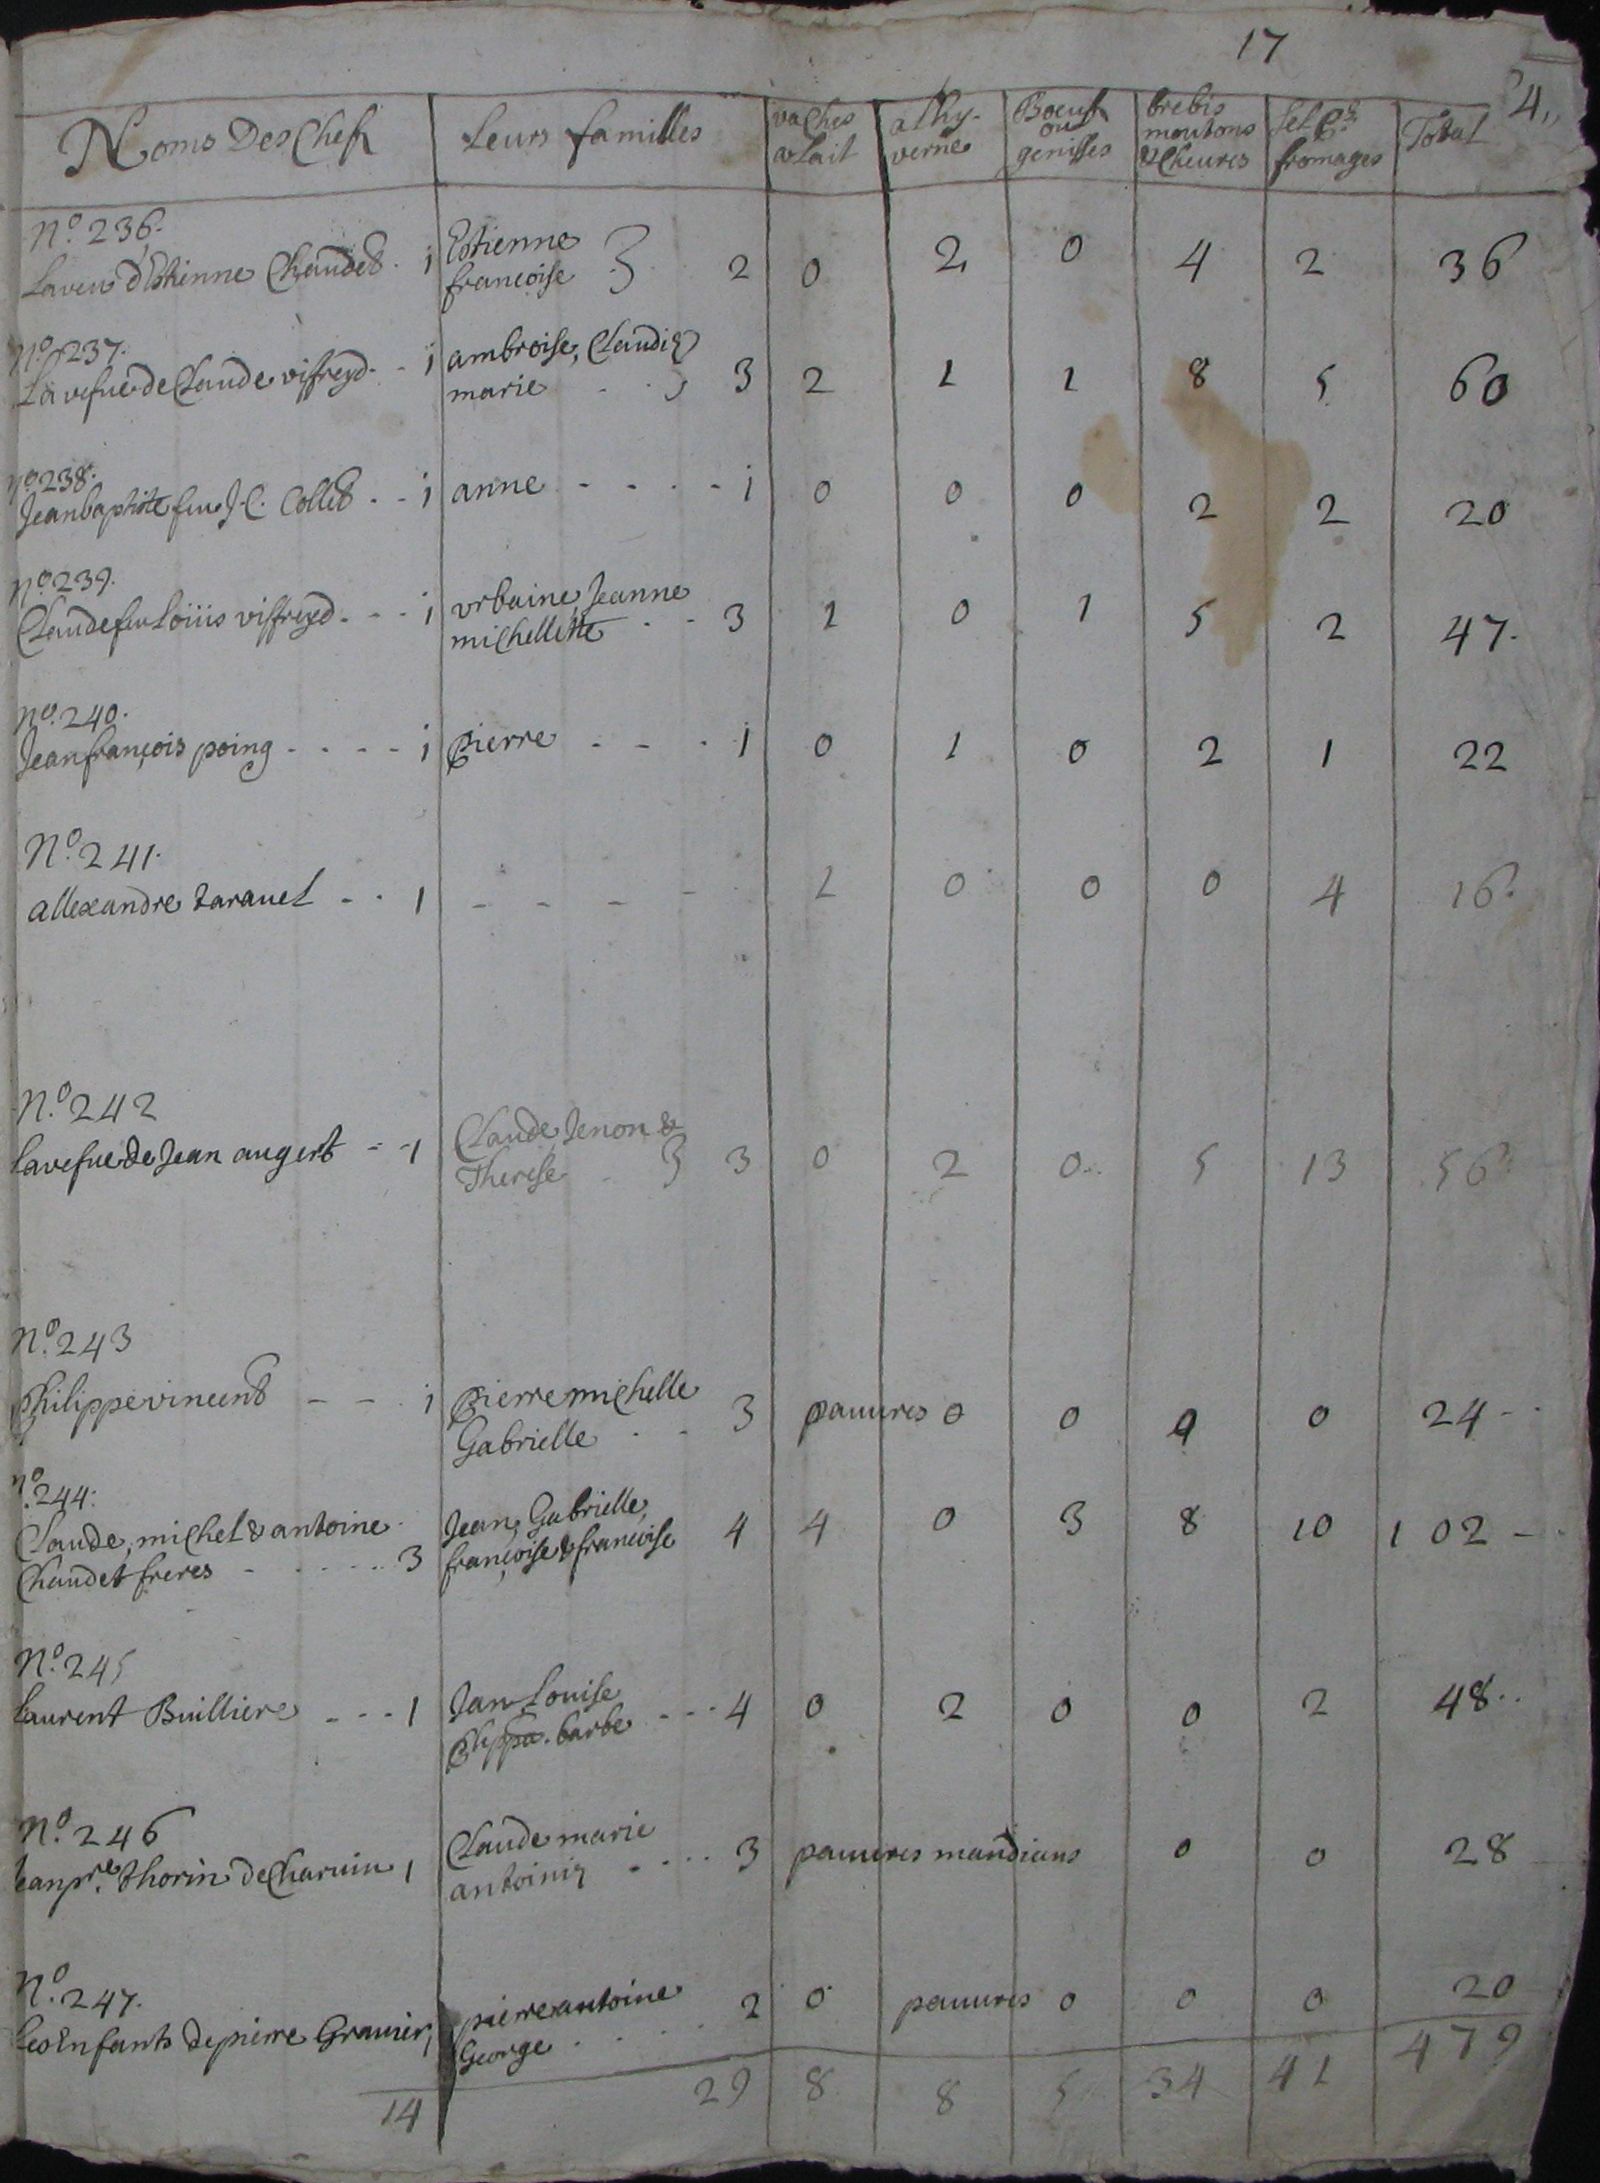 17
24,,
Noms Des Chefs | Leurs familles | vaches a lait | a thy-verne | Boeufs ou genisses | brebis moutons & Cheures | sel fromages | Total
No. 236.
Laveuu d'Estienne Chaudet . 1 | Estienne françoise 2 | 0 | 2 | 0 | 4 | 2 | 36
No. 237.
La vefue de Claude viffreyd . . 1 | ambroise, Claudiᵉ marie . . 3 | 2 | 1 | 1 | 8 | 5 | 60
no. 238.
Jean baptiste feu J. C. Collet . . 1 | anne - - - - 1 | 0 | 0 | 0 | 2 | 2 | 20
no. 239.
Claude feu Loüis viffreyd . - - 1 | vrbaine, Jeanne michellette . - 3 | 1 | 0 | 1 | 5 | 2 | 47.
no. 240.
Jean françois poing - . - - 1 | pierre - - . 1 | 0 | 1 | 0 | 2 | 1 | 22
No. 241.
allexandre taravel - . 1 | - - - - . | 1 | 0 | 0 | 0 | 4 | 16.
No. 242
la vefue de Jean augert - - 1 | Claude Jenon & Therese . 3 | 0 | 2 | 0 | 5 | 13 | 56
No. 243
Philippe vincent - - . 1 | pierre michelle Gabrielle . - 3 | pauures | 0 | 0 | 0 | 0 | 24 - .
no. 244.
Claude, michel & antoine
Chaudet freres - . . . . 3 | Jean, Gabrielle, françoise & françoise 4 | 4 | 0 | 3 | 8 | 10 | 102 - .
No. 245
Laurent Buillierē - - - 1 | Jean Louise barbe - - - 4 | 0 | 2 | 0 | 0 | 2 | 48 . .
No. 246
Jean pre. thorin de Charuin 1 | Claude marie . . . 3 | pauures mandians | 0 | 0 | 28
No. 247.
les Enfants de pierre Granier, | pierre antoine George . . . . 2 | 0 | pauures | 0 | 0 | 0 | 20
14 | 29 | 8 | 8 | 5 | 34 | 41 | 479